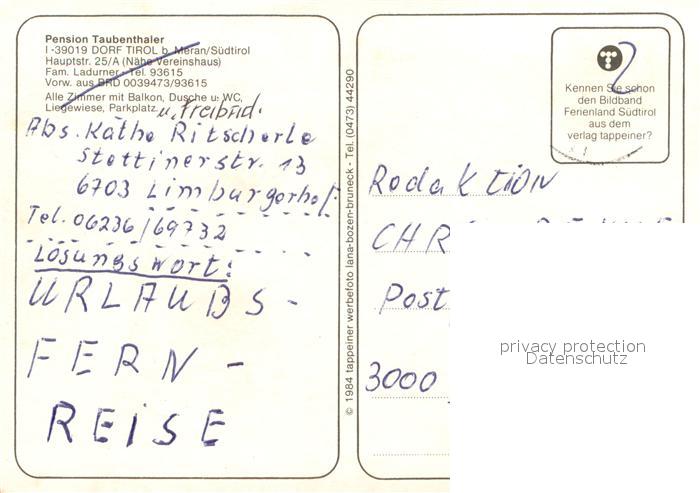 Pension Taubenthaler
I-39019 DORF TIROL b. Meran/Südtirol
Hauptstr. 25/A (Nähe Vereinshaus)
Fam. Ladurner - Tel. 93615
Vorw. aus BRD 0039473/93615
Alle Zimmer mit Balkon, Dusche u. WC,
Liegewiese, Parkplatz. u. Freibad.
Abs. Käthe Ritscherle
Stettinerstr. 13
6703 Limburgerhof
Tel. 06236/69732
Lösungswort:
URLAUBS-
FERN-
REISE
© 1984 tappeiner werbefoto lana-bozen-bruneck - Tel. (0473) 44290
Kennen Sie schon
den Bildband
Ferienland Südtirol
aus dem
verlag tappeiner?
Redaktion
CHR
Post
3000
privacy protection
Datenschutz